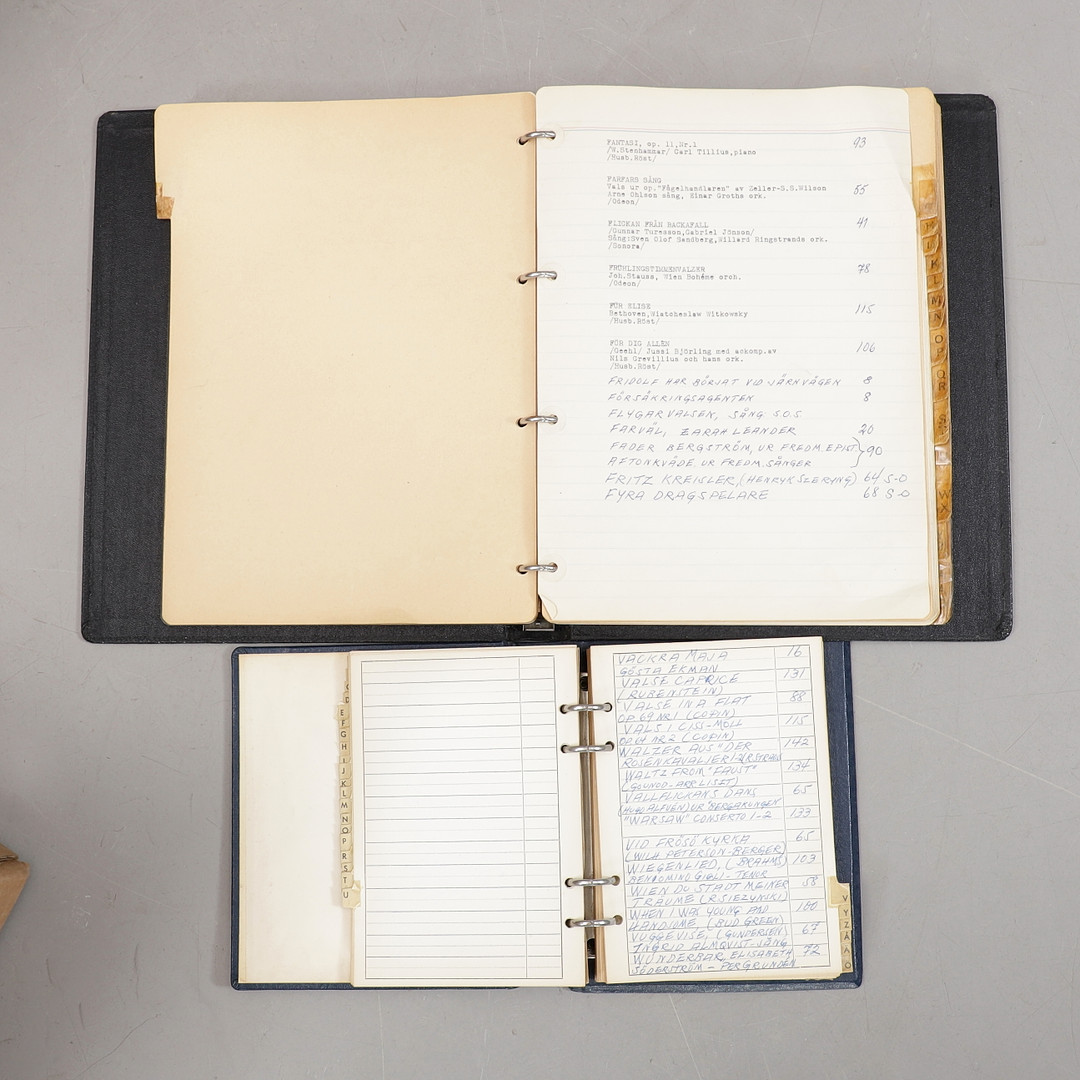 FANTASI, op. 11,Nr.1 93
/W.Stenhammar/ Carl Tillius,piano
/Husb.Röst/
FARFARS SÅNG
Vals ur op."Fågelhandlaren" av Zeller-S.S.Wilson 55
Arne Ohlson sång, Einar Groths ork.
/Odeon/
FLICKAN FRÅN BACKAFALL 41
/Gunnar Turesson,Gabriel Jönson/
Sång:Sven Olof Sandberg,Willard Ringstrands ork.
/Sonora/
FRÜHLINGSTIMMENVALSER 78
Joh.Stauss, Wien Bohéme orch.
/Odeon/
FÜR ELISE 115
Bethoven,Wiatcheslaw Witkowsky
/Husb.Röst/
FÖR DIG ALLEN 106
/Geehl/ Jussi Björling med ackomp.av
Nils Grevillius och hans ork.
/Husb.Röst/
FRIDOLF HAR BÖRJAT VID JÄRNVÄGEN 8
FÖRSÄKRINGSAGENTEN 8
FLYGARVALSEN, SÅNG S.O.S
FARVÄL, ZARAH LEANDER 20
FADER BERGSTRÖM, UR FREDM.EPIST. 90
AFTONKVÄDE. UR FREDM.SÅNGER
FRITZ KREISLER,(HENRYK SZERYNG) 64 S-O
FYRA DRAGSPELARE 68 S-O
H
I
K
L
M
N
O
P
QR
S
W
X
VACKRA MAJA 16
GÖSTA EKMAN
VALSE CAPRICE 131
(RUBENSTEIN)
VALSE IN A FLAT 88
OP.69 NR.1 (COPIN)
VALS I CISS-MOLL 115
OP.64 NR 2 (COPIN)
WALZER AUS "DER 142
ROSENKAVALIER 1-2(R.STRAUSS
WALTZ FROM "FAUST" 134
(GOUNOD-ARR LISZT)
VALLFLICKANS DANS 65
(HUGO ALFVEN) UR "BERGAKUNGEN
"WARSAW" CONSERTO 1-2 133
VID FRÖSÖ KYRKA 65
(WILH PETERSON-BERGER)
WIEGENLIED, (BRAHMS) 103
BENIOMINO GIGLI - TENOR
WIEN DU STADT MEINER 58
TRAUME (R.SIEZYNSKI)
WHEN I WAS YOUNG AND 100
HANDIOME (BUD GREEN)
VUGGEVISE, (GUNDERSEN) 67
INGRID ALMQVIST-SÅNG
WUNDERBAR ELISABETH 72
SÖDERSTRÖM - PER GRUNDEN
C
D
E
F
G
H
I
J
K
L
M
N
O
P
R
S
T
U
V
Y
Z
Å
Ä
Ö